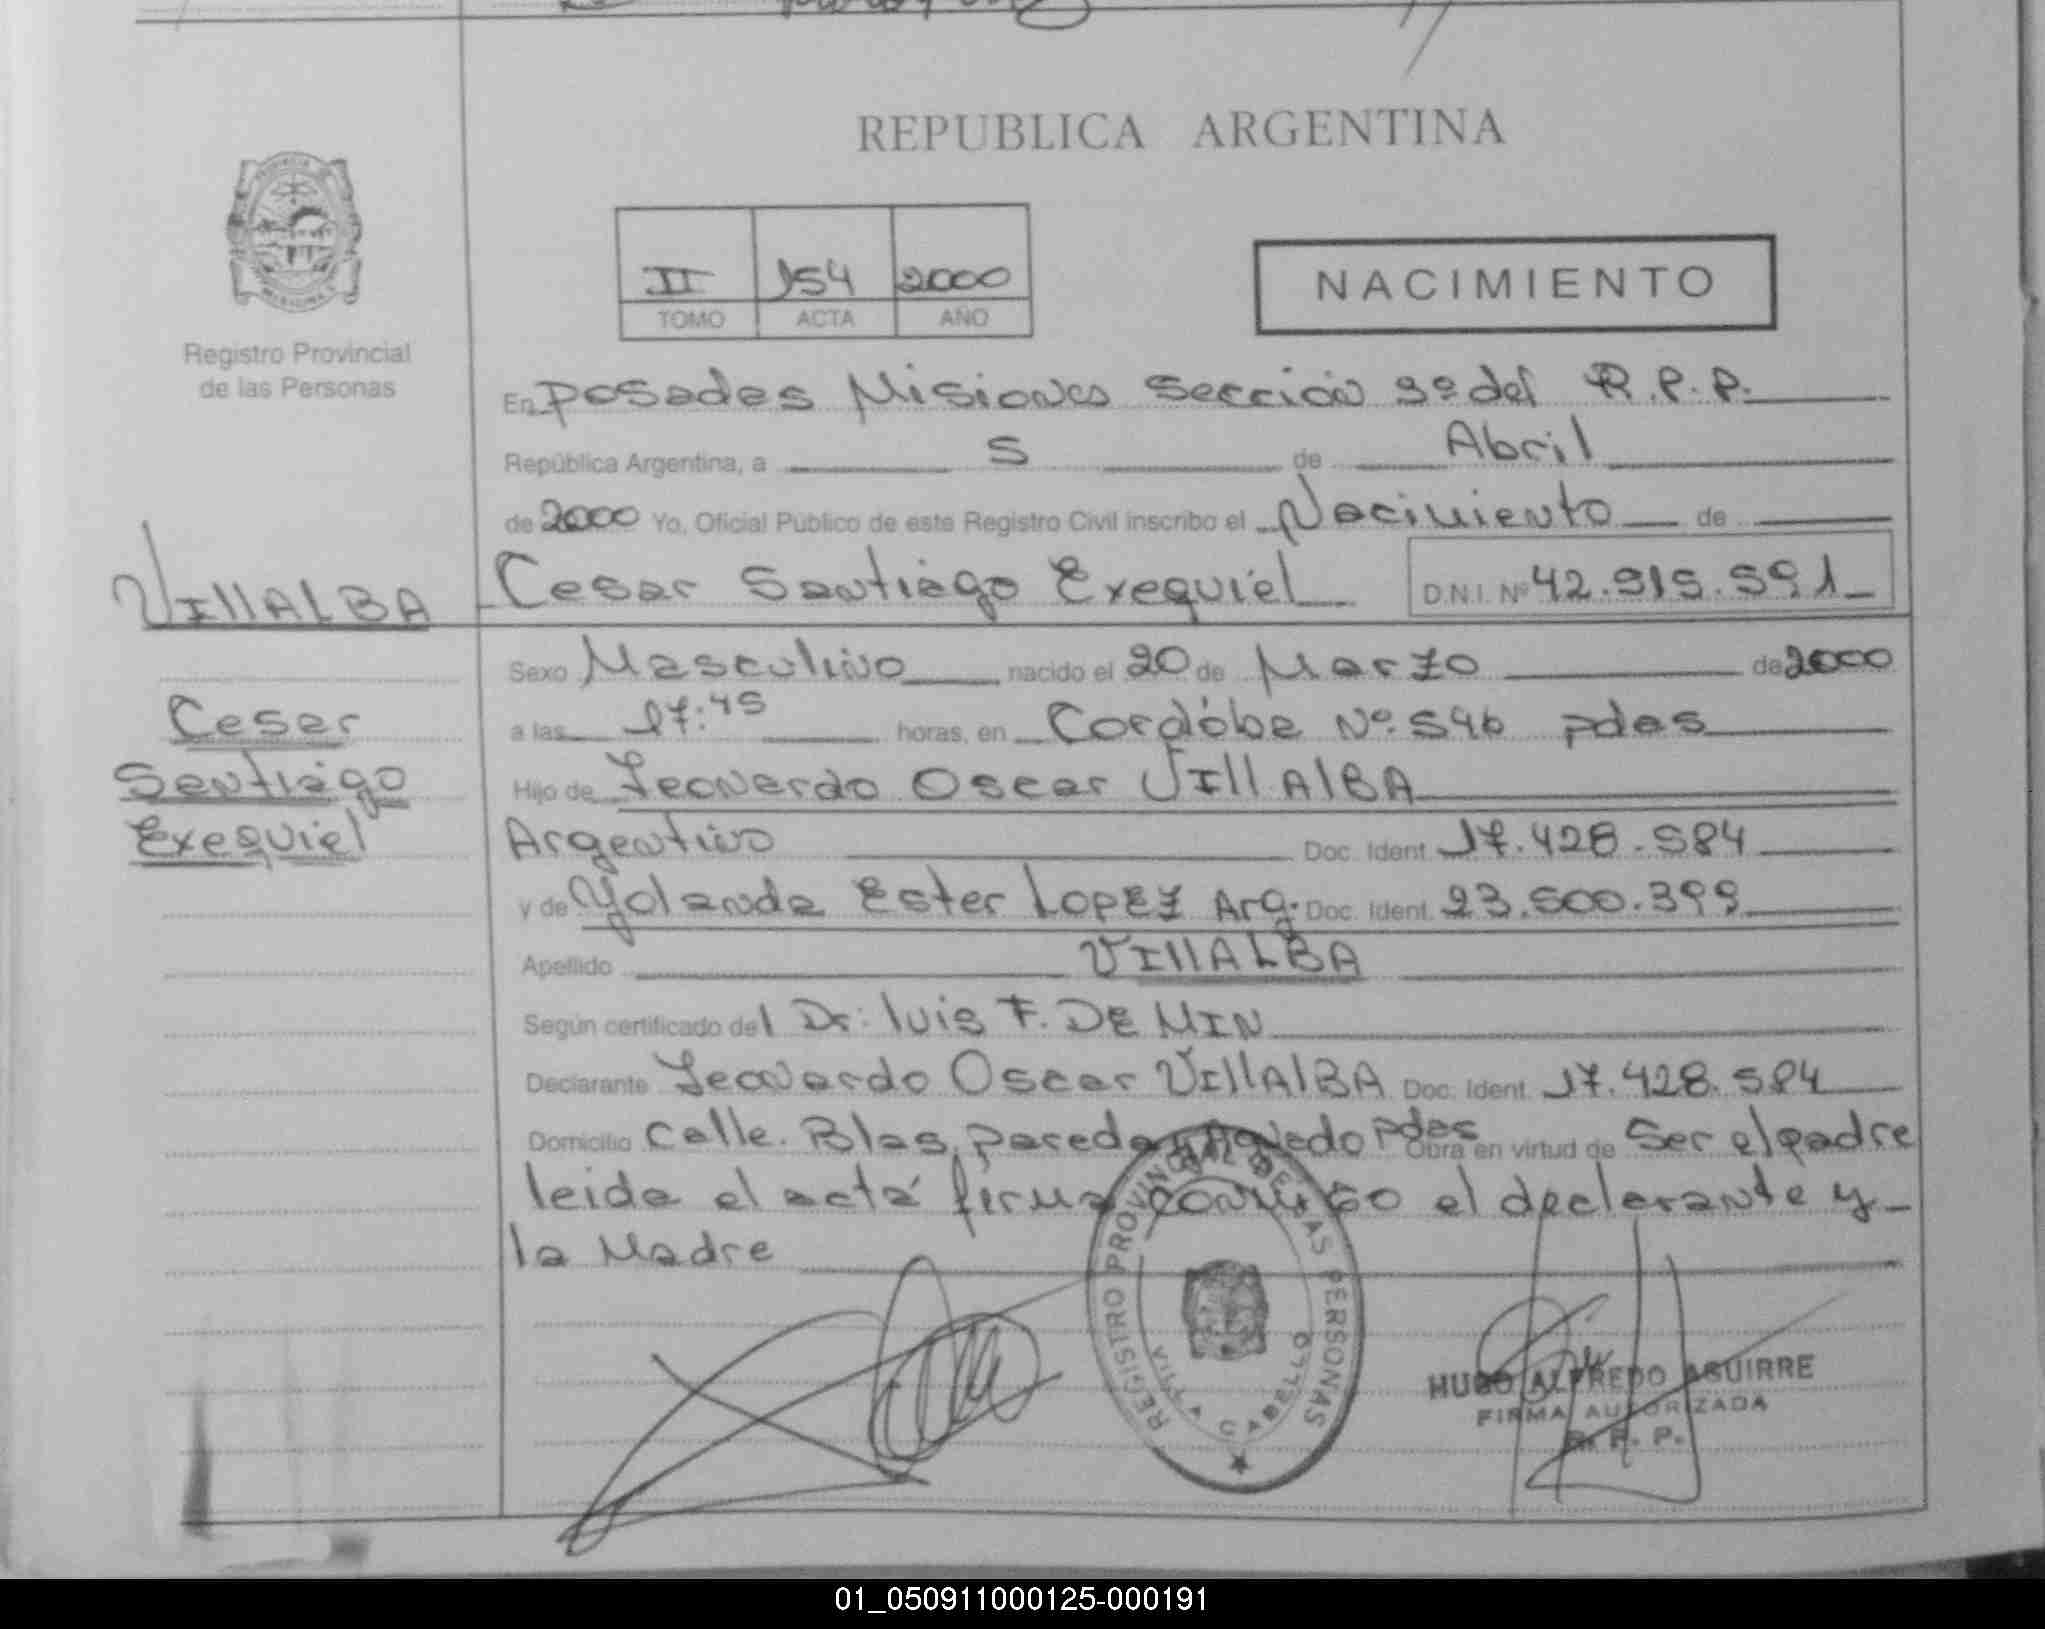 REPUBLICA ARGENTINA
II 154 2000
TOMO ACTA AÑO
NACIMIENTO
Registro Provincial
de las Personas
En Posadas Misiones Sección 3º del R.P.P.
República Argentina, a 5 de Abril
de 2000 Yo, Oficial Público de este Registro Civil inscribo el Nacimiento de
VIllALBA
Cesar Santiago Exequiel D.N.I. Nº 42.915.591
Sexo Masculino nacido el 20 de Marzo de 2000
Cesar
a las 17:45 horas, en Cordóba Nº 546 pdas
Santiago
Hijo de Leonardo Oscar VIllAlBA
Exequiel
Argentino Doc. Ident. 17.428.584
y de Yolanda Ester LOPEZ Arg. Doc. Ident. 23.500.399
Apellido VIllALBA
Según certificado del Dr: luis F. DE MIN
Declarante Leonardo Oscar VIllAlBA Doc. Ident. 17.428.584
Domicilio Calle. Blas Pareda y Pdas Obra en virtud de Ser el padre
leida el acta firma conmigo el declarante y
la Madre
REGISTRO PROVINCIAL DE LAS PERSONAS
VILLA CABELLO
HUGO ALFREDO AGUIRRE
FIRMA AUTORIZADA
R. P. P.
01_050911000125-000191